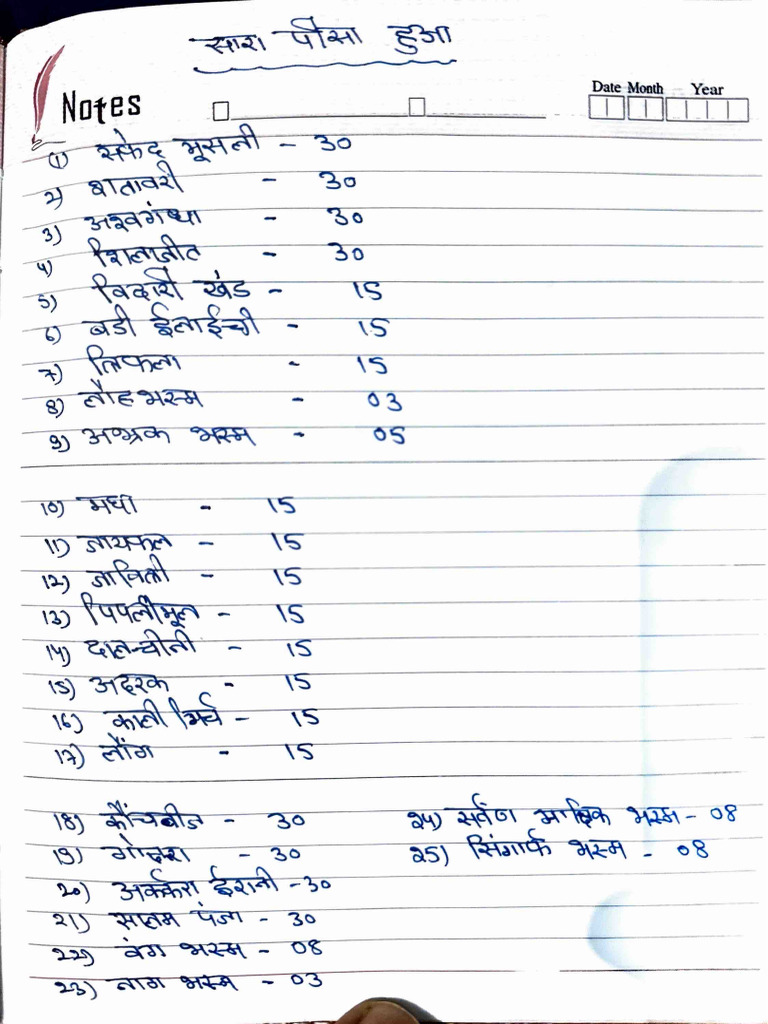 सारा पीसा हुआ
Notes
Date Month Year
(1) सफेद मूसली - 30
2) शतावरी - 30
3) अश्वगंधा - 30
4) शिलाजीत - 30
5) विदारी खंड - 15
6) बडी ईलाईची - 15
7) त्रिफला - 15
8) लौहभस्म - 03
9) अभ्रक भस्म - 05
10) मघा - 15
11) जायफल - 15
12) जावित्री - 15
13) पिपलीमूल - 15
14) दालचीनी - 15
15) अदरक - 15
16) काली मिर्च - 15
17) लौंग - 15
18) कौंचबीज - 30 24) सर्वण माक्षिक भस्म - 08
19) - 30 25) सिंगार्फ भस्म - 08
20) अर्ककरा ईरानी - 30
21) सालम पंजा - 30
22) वंग भस्म - 08
23) नाग भस्म - 03